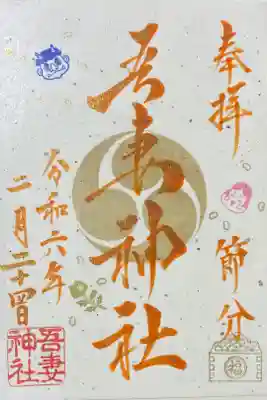 奉拝
節分
福
吾妻神社
令和六年
二月二十四日
吾妻
神社